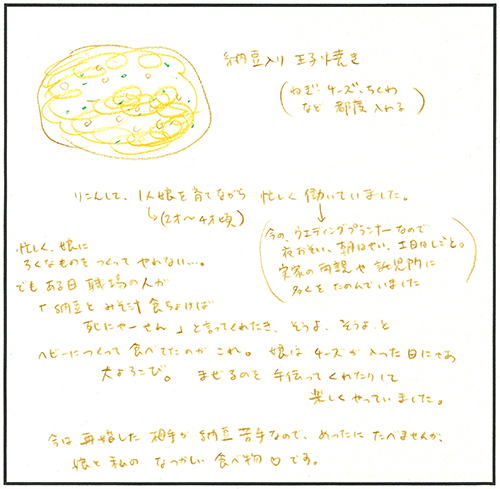 納豆入り 玉子焼き
(ねぎ・チーズ・ちくわ
など 都度 入れる)
りこんして、1人娘を育てながら 忙しく 働いていました。
↳(2才〜4才頃)
今の、ウエディングプランナーなので
夜おそい、朝はせい、土日はしごと。
実家の両親や 託児所に
多くをたのんでいました
忙しく、娘に
ろくなものを つくって やれない…。
でも ある日 職場の人が
「納豆と みそ汁 食ちょけば
死にゃーせん」と言ってくれたとき、そうよ、そうよ、と
ヘビーにつくって 食べてたのが これ。 娘は チーズが 入った日にゃあ
大よろこび。 まぜるのを 手伝ってくれたりして
楽しく やっていました。
今は 再婚した 相手が 納豆 苦手なので、めったに たべませんが、
娘と 私の なつかしい 食べ物♡です。